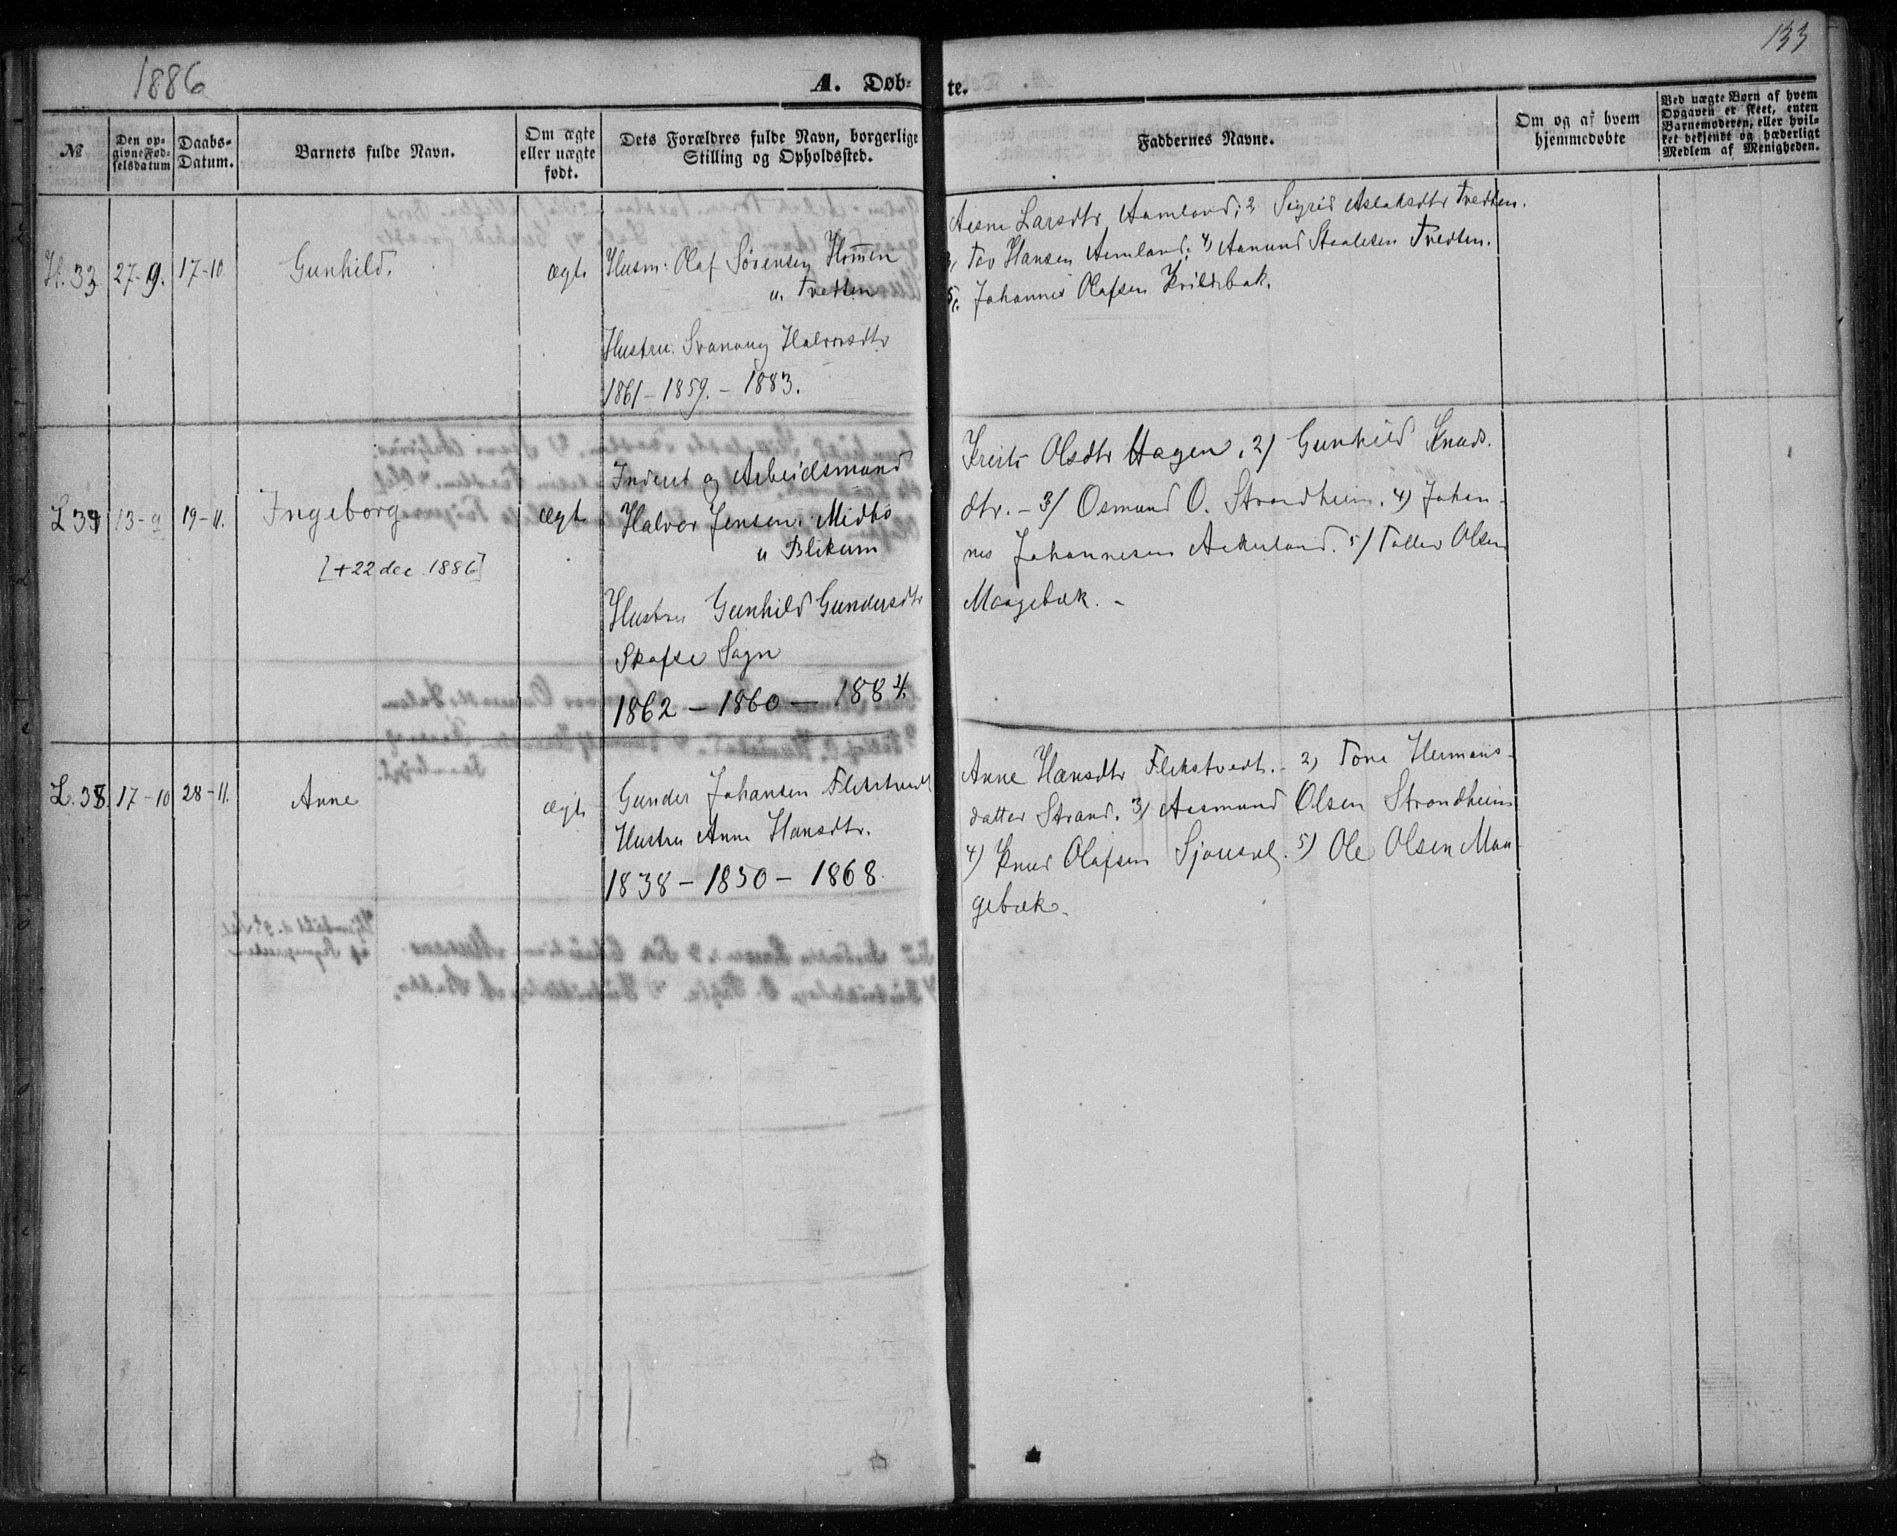 1886
A. Døb-
te.
133
№
Den op-
givne Fød-
selsdatum
Daabs-
Datum.
Barnets fulde Navn.
Om ægte
eller uægte
født.
Dets Forældres fulde Navn, borgerlige
Stilling og Opholdssted.
Faddernes Navne.
Om og af hvem
hjemmedøbte
Ved uægte Børn af hvem
Opgaven er skeet, enten
Barnemoderen, eller hvil-
ket bekjendt og hæderligt
Medlem af Menigheden.
H. 33 27-9. 17-10 Gunhild. ægte
Husm: Olaf Sørensen
u. Tvedten
Hustru: Svanaug Halvorsdtr
1861 - 1859. - 1883.
Larsdtr Aamland; 2 Sigrid Aslaksdtr Tvedten.
3, Tov Hansen Aamland; 4) Aanund Staalesen Tvedten.
5, Johannes Olafsen Kvildebak.
L 13-9 19-11. Ingeborg ægte
[+22 dec. 1886]
Inderst og Arbeidsmand
Halvor Jensen Midbø
u Blikum
Hustru Gunhild Gundersdtr
Skafse Sogn
1862 - 1860 - 1884.
Olsdtr Hagen, 2) Gunhild Knuds.
dtr. - 3) Osmund O. Strondheim. 4) Johan-
nes Johannesen Aakerland. 5) Tallev Olsen
Maagebæk. -
L. 38. 17-10 28-11. Anne ægte
Gunder Johansen Flekstvedt
Hustru Anne Hansdtr.
1838 - 1850 - 1868.
Anne Hansdtr Flekstvedt. - 2) Tone Hermans-
datter Strand. 3) Aasmund Olsen Strondheim
4) Knud Olafsen 5) Ole Olsen Maa-
gebæk.